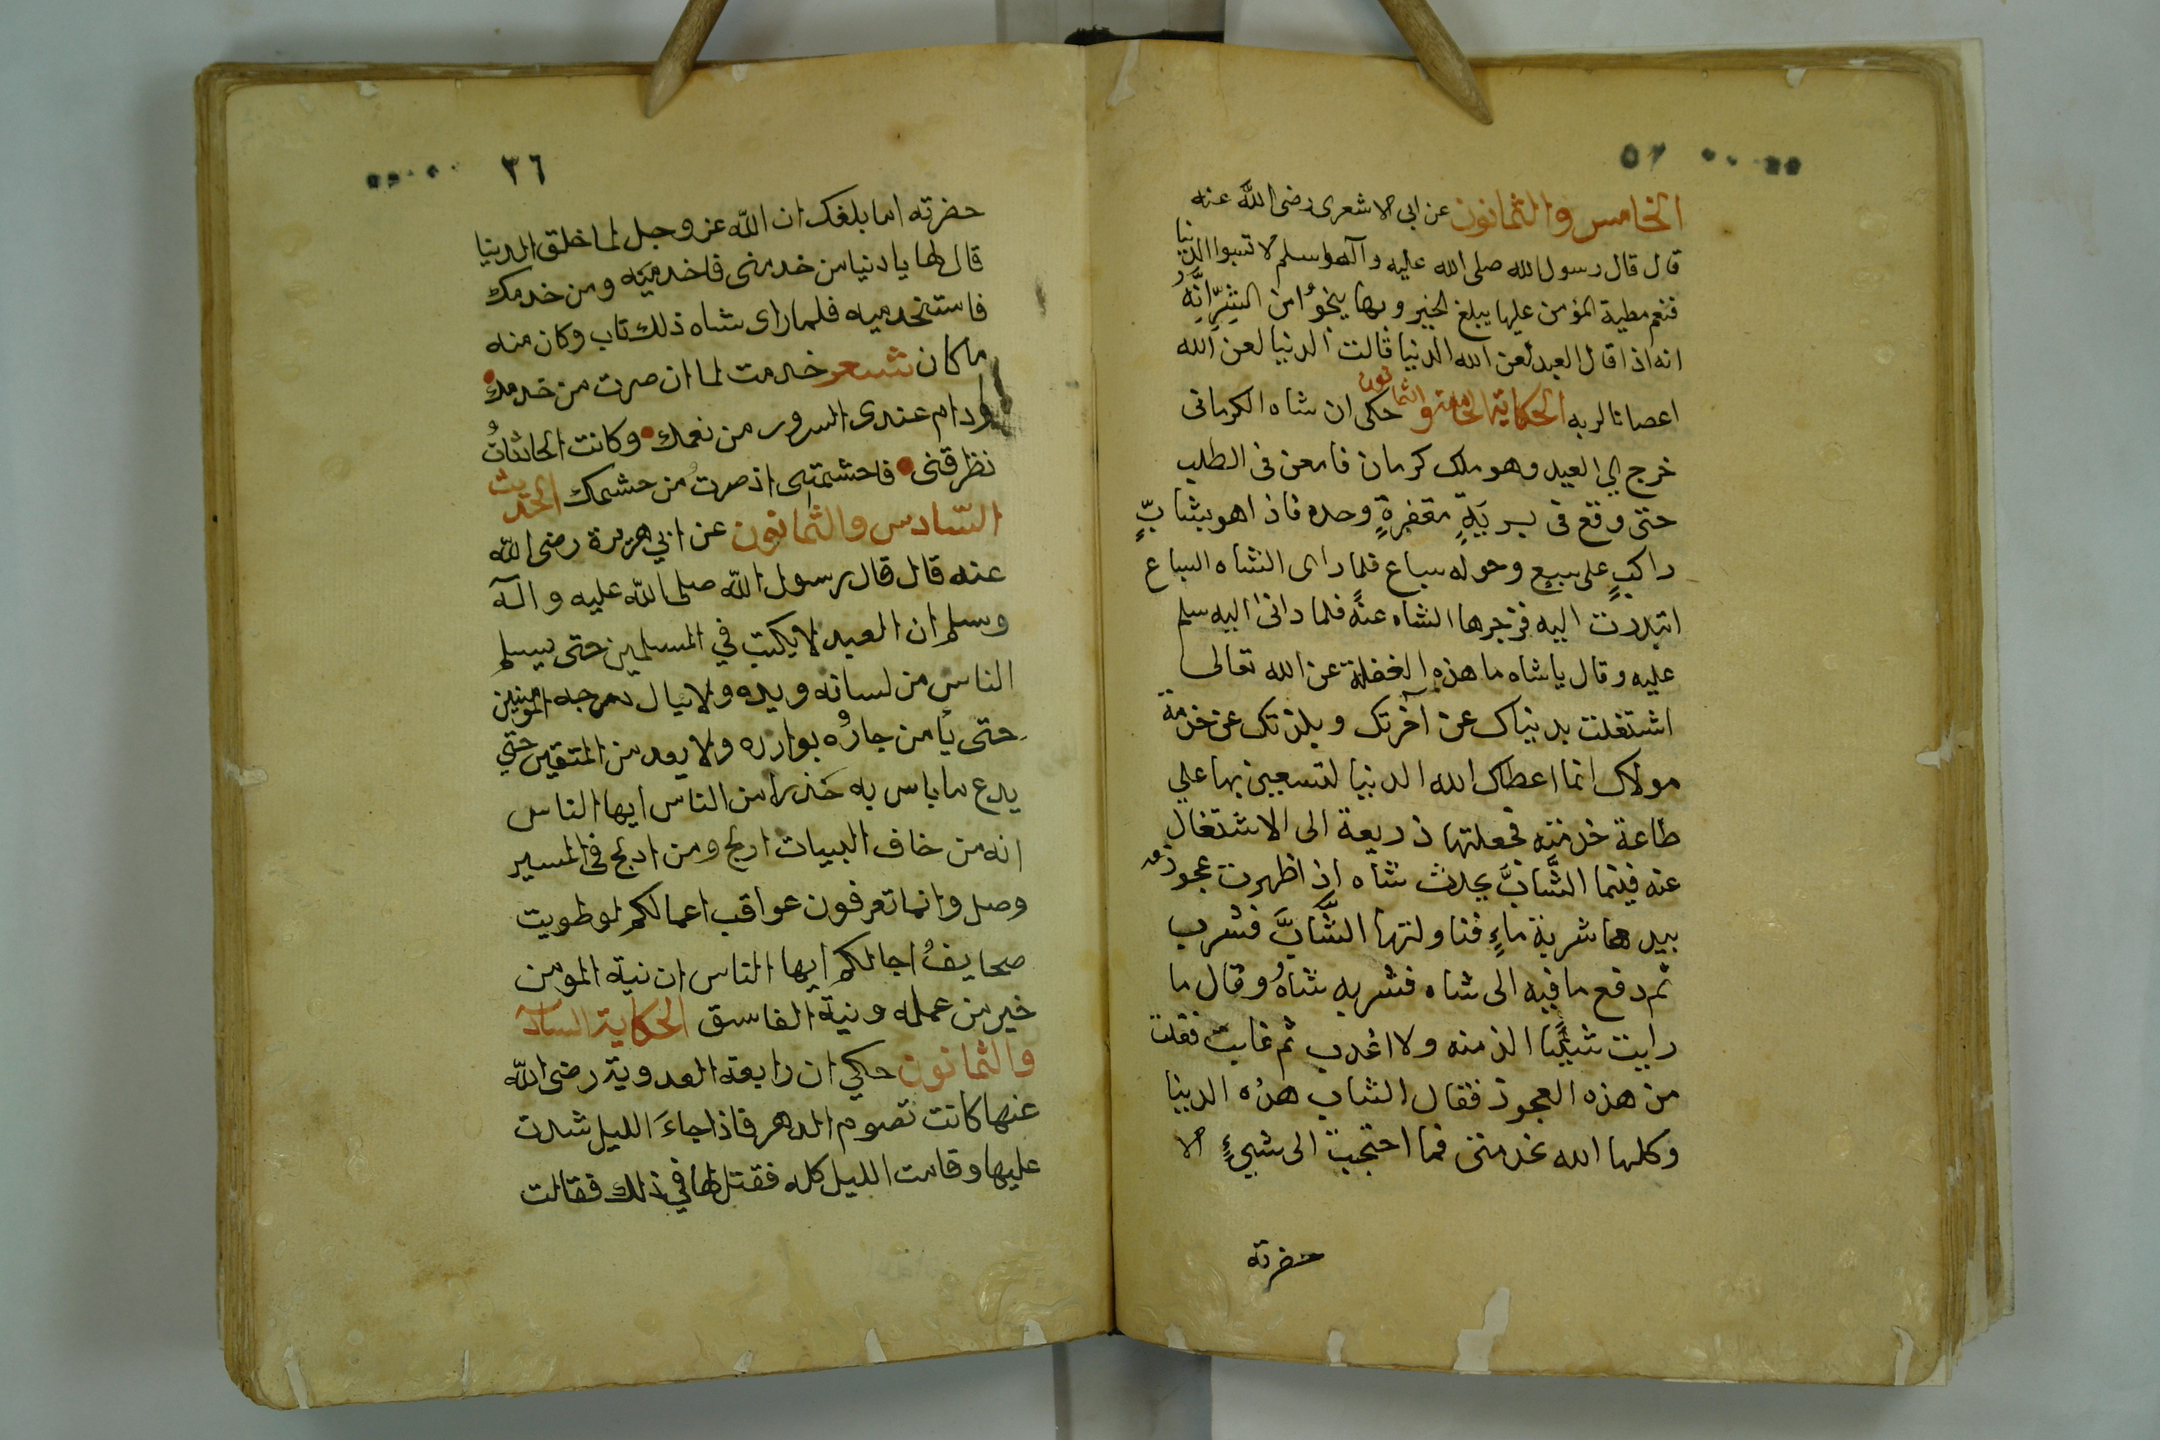 ٥٢
الخامس والثمانون عن ابى الاشعرى رضى الله عنه
قال قال رسول الله صلى الله عليه وآله وسلم لا تسبوا الدنيا
فنعم مطية المؤمن عليها يبلغ الخير وبها ينجوُا من الشِرِّانَّهُ
انه اذا قال العبد لعن الله الدنيا قالت الدنيا لعن الله
اعصانا لربه الحكاية الخامسة والثمانون حكى ان شاه الكرمانى
خرج الي العيد وهو ملك كرمان فامعن فى الطلب
حتى وقع فى بريَةٍ مقفرةٍ وحده فاذا هو بشابٍّ
راكبٍ على سبعٍ وحوله سباع فلما راى الشاه السباع
ابتدرت اليه فزجرها الشاه عنه فلما دانى اليه سلم
عليه وقال يا شاه ما هذه الغفلة عن الله تعالى
اشتغلت بدنياك عن آخرتك وبلذتك عن خدمة
مولاك انما اعطاك الله الدنيا لتستعين بها علي
طاعة خدمته فجعلتها ذريعة الى الاشتغال
عنه فبينما الشابَّ يحدث شاه اذ اظهرت عجوز
بيدها شربة ماءٍ فناولتها الشَّابَّ فشرب
ثم دفع ما فيه الى شاه فشربه شاهُ وقال ما
رايت شيئًا الذ منه ولا اعذب ثم غابت فقلت
من هذه العجوز فقال الشاب هذه الدنيا
وكلها الله بخدمتى فما احتجبت الى شيءٍ الا
حضرته
٣٦
حضرته اما بلغك ان الله عز وجل لما خلق الدنيا
قال لها يا دنيا من خدمنى فاخدميه ومن خدمك
فاستخدميه فلما راى شاه ذلك تاب وكان منه
ما كان شعر خدمت لما ان صرت من خدمك
ودام عندى السرور من نعمك وكانت الحاثثاتُ
نظرقنى فاحشمتنى اذ صرتُ من حشمك الحديث
السّادس والثمانون عن ابي هريرة رضى الله
عنه قال قال رسول الله صلى الله عليه وآله
وسلم ان العبد لا يكتب في المسلمين حتى يسلم
الناس من لسانه ويده ولا ينال درجه المومنين
حتى يأمن جارُه بوادره ولا يعد من المتقين حتى
يدع ما باس به حَذرا من الناس ايها الناس
انه من خاف البيات ادلج ومن ادلج فى المسير
وصل وانما تعرفون عواقب اعمالكم لو طويت
صحايفُ اجالكم ايها الناس ان نية المومن
خير من عمله ونية الفاسق الحكاية السادسة
والثمانون حكي ان رابعة العدوية رضى الله
عنها كانت تصوم الدهر فاذا جاءَ الليل شدت
عليها وقامت الليل كله فقتل لها في ذلك فقالت